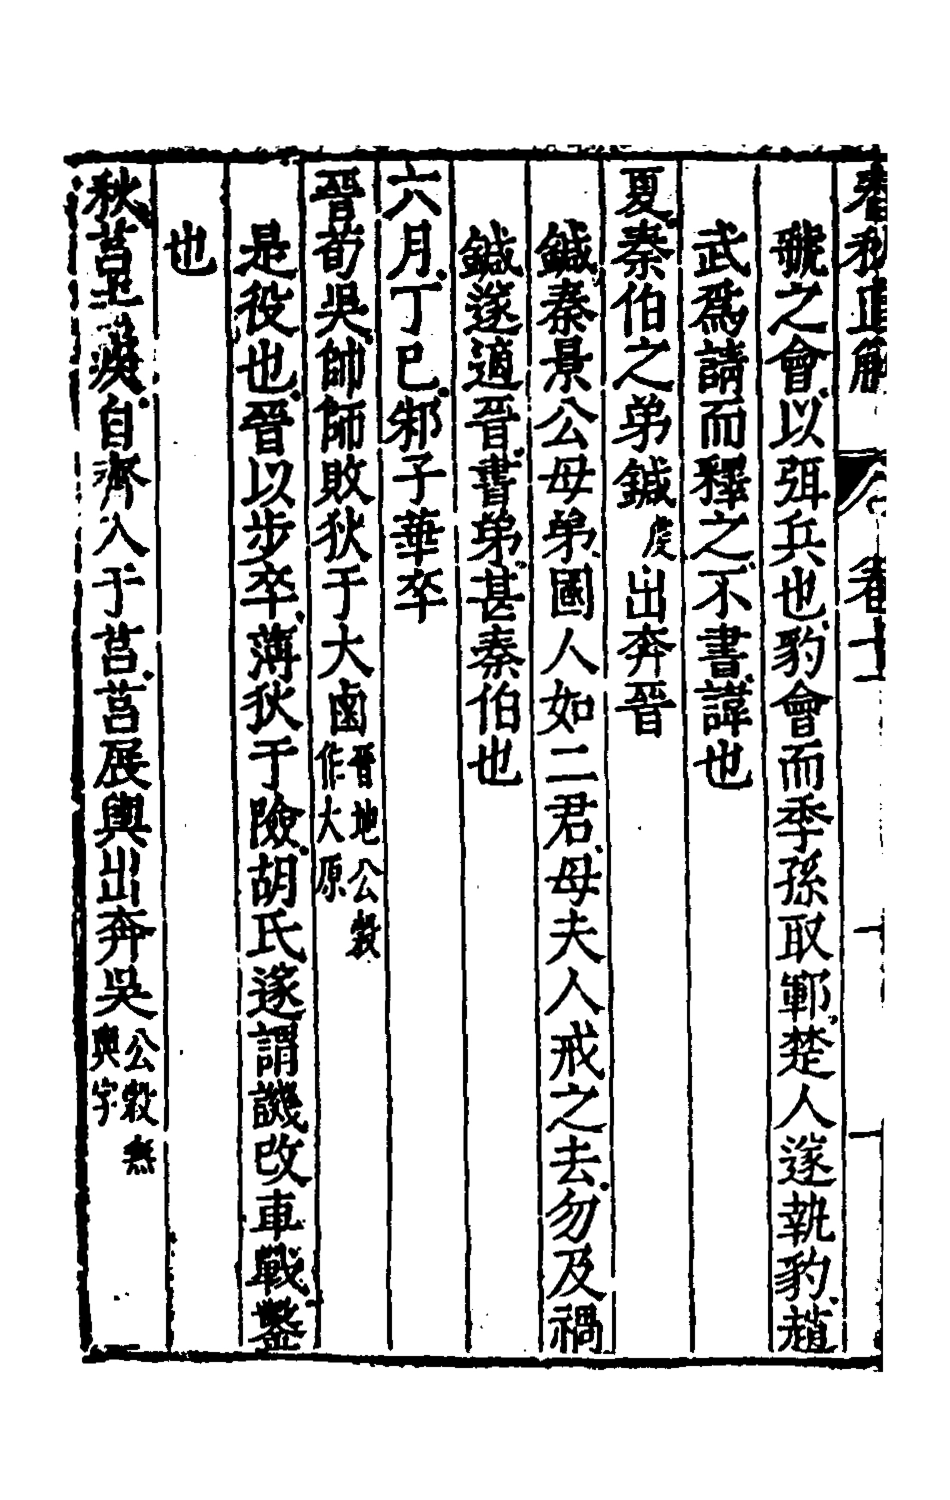 春秋直解 卷十
虢之會以弭兵也豹會而季孫取鄆楚人遂執豹趙
武爲請而釋之不書諱也
夏秦伯之弟鍼虔出奔晉
鍼秦景公母弟國人如二君母夫人戒之去勿及禍
鍼遂適晉書弟甚秦伯也
六月丁巳邾子華卒
晉荀吳帥師敗狄于大鹵晉地公穀作大原
是役也晉以步卒薄狄于險胡氏遂謂譏改車戰鑿
也
秋莒去疾自齊入于莒莒展輿出奔吳公穀無輿字